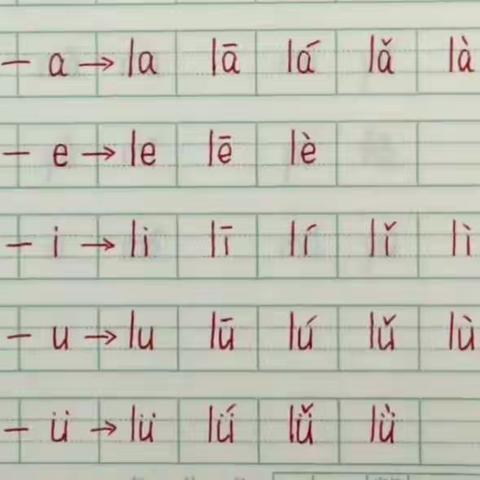 — a → la lā lá lǎ là
— e → le lē lè
— i → li lī lí lǐ lì
— u → lu lū lú lǔ lù
— ü → lü lǘ lǚ lǜ